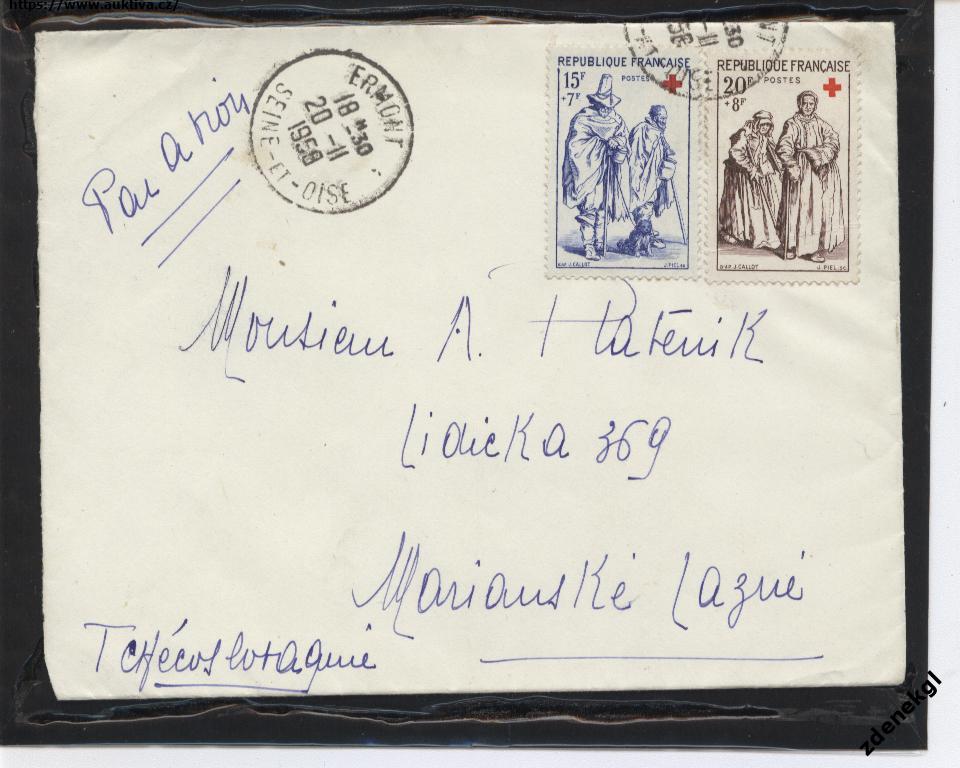 https://www.aukliva.cz/
Par avion
ERMONT
18 H30
20-11
1958
SEINE-ET-OISE
30
-11
58
REPUBLIQUE FRANÇAISE
15F
+7F
POSTES
D'AP. J.CALLOT
J.PIEL.SC
REPUBLIQUE FRANÇAISE
20F
+8F
POSTES
D'AP. J.CALLOT
J.PIEL.SC
Monsieur A. Hatěnik
Lidicka 369
Marianské Lazné
Tchécoslovaquie
zdenekgl